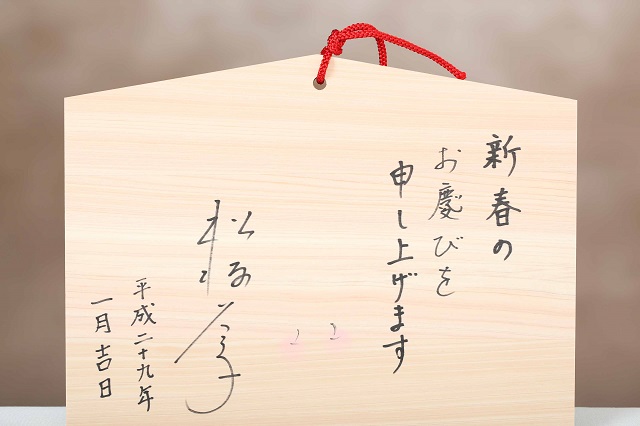 新春の
お慶びを
申し上げます
平成二十九年
一月吉日